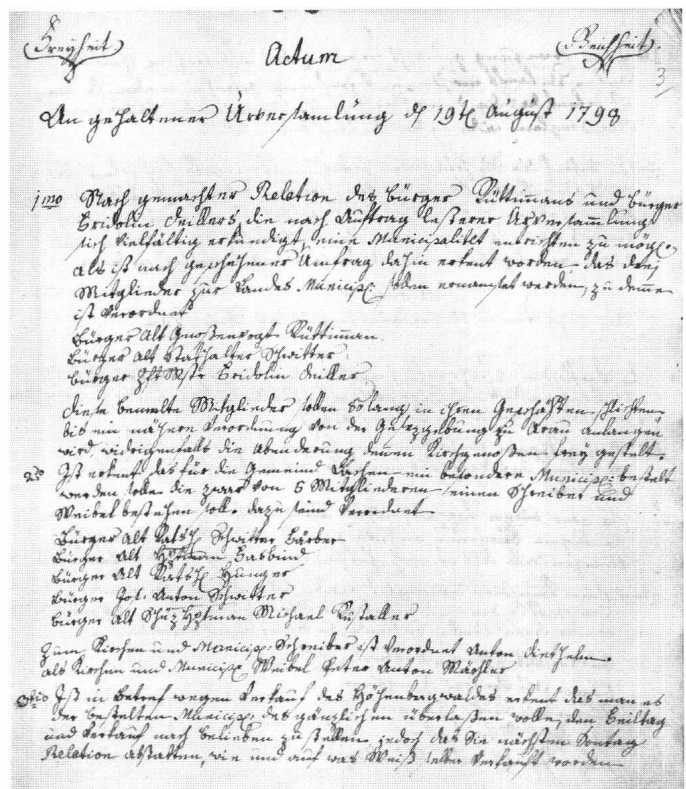 Freyheit Actum Gleichheit. 3
An gehaltener Urversamlung d 19t August 1798
1mo Nach gemachter Relation des Bürger Rüttimans und bürger
Fridolin Feillers, die nach Auftrag lesterer Urversammlung
sich Vielfältig erkundiget, eine Municipalitet entrichten zu mög
Als ist nach geschehner Umfrag dahin erkent worden das drei
Mitglieder zur Landes Municip: sollen ernamset werden, zu deme
ist Verordnet
Bürger Alt Gnoßenvogt Rüttiman
bürger Alt Statthalter Schwitter
bürger Fridolin Feiller
Diese bemelte Mitglieder sollen So lang in ihren Geschäften
bis ein nähere Verordnung von der Gesezgebung zu Arau anlangen
wird, widrigenfalls die Abenderung denen Kirchgenoßen frey gestelt.
2do Ist erkent das für die Gemeind Lachen ein besondere Municip: bestelt
werden solle die zwar von 5 Mitgliederen einen Schreiber und
Weibel bestehen soll. dazu seind Verordnet
bürger Alt Rathsh Schwitter Färber
bürger Alt Haſbind
bürger Alt Rathsh Hunger
bürger Jos: Anton Schwitter
bürger Alt Schüz Hptman Michael Rustaller
Zum Kirchen und Municip: Schreiber ist Verordnet Anton Diethelm
als Kirchen und Municip Weibel Peter Anton Mächler
3tio Ist in betref wegen Verkauf des Waldes erkent das man es
der bestelten Municip: des gänzlichen überlaßen wolle, den Feiltag
und Verkauf nach belieben zu stellen jedoch das Sie nächsten Sontag
Relation abstatten, wie und auf was Weiß selber Verkauft worden